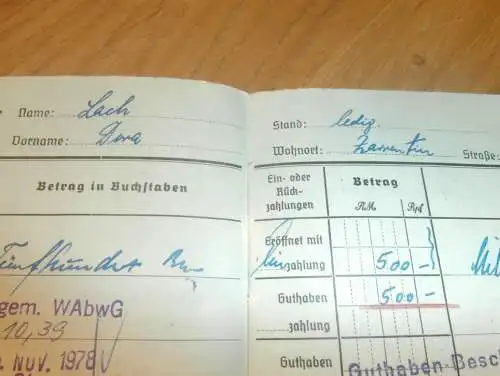 Name: Lach
Vorname: Dora
Betrag in Buchstaben
Fünfhundert
gem. WAbwG
10,39
NOV. 1978
Stand: ledig
Wohnort: Zarrentin Straße:
Ein- oder Rück-zahlungen
Betrag
RM Rpf
Eröffnet mit
Einzahlung 500 –
Guthaben 500 –
zahlung
Guthaben
Guthaben-Besch